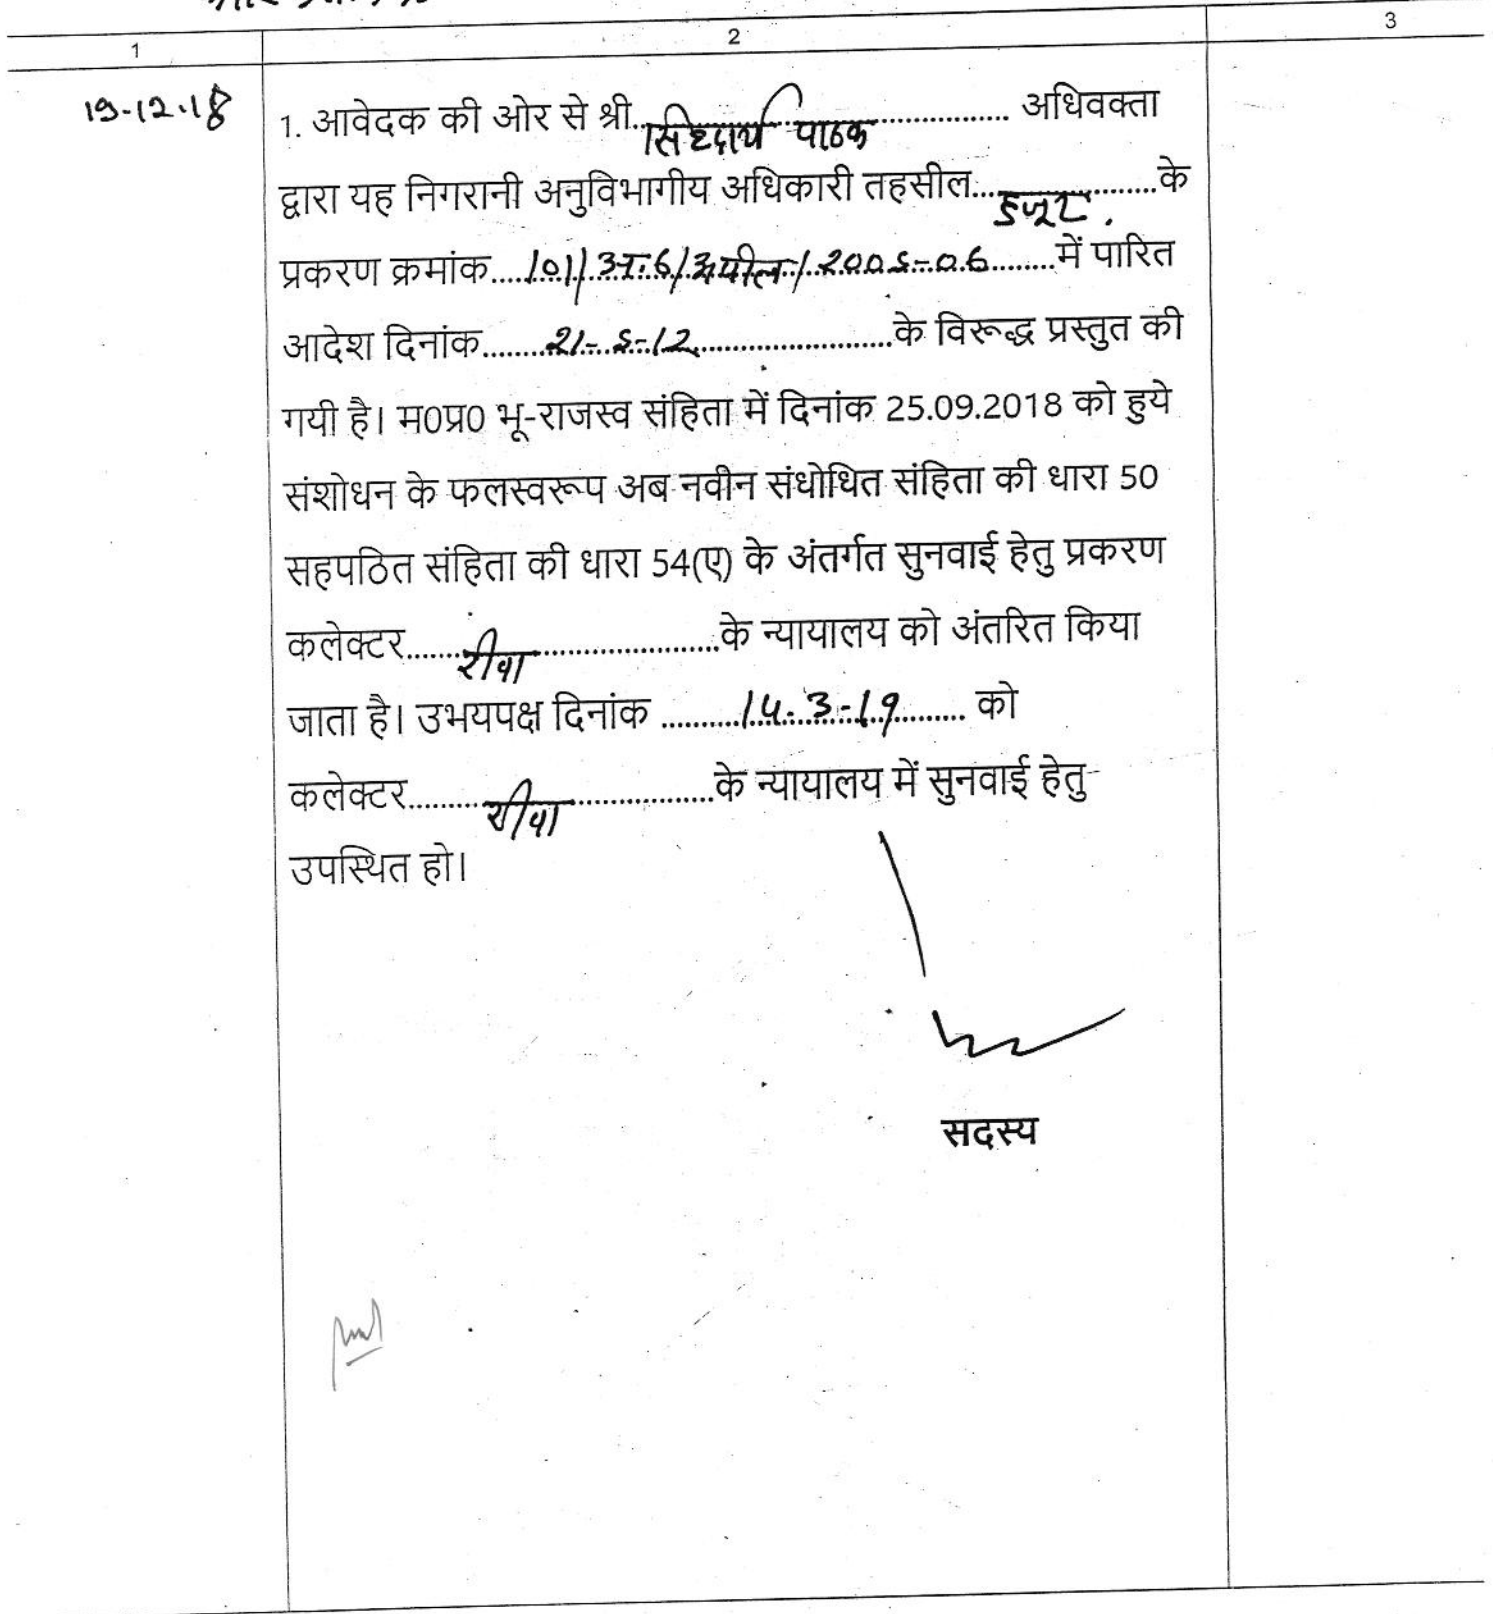 1 2 3
19-12-18
1. आवेदक की ओर से श्री.....सिध्दार्थ पाठक..... अधिवक्ता
द्वारा यह निगरानी अनुविभागीय अधिकारी तहसील.....हुजूर.....के
प्रकरण क्रमांक.....101/अ.6/अपील/2005-06.....में पारित
आदेश दिनांक.....21-5-12.....के विरूद्ध प्रस्तुत की
गयी है। म0प्र0 भू-राजस्व संहिता में दिनांक 25.09.2018 को हुये
संशोधन के फलस्वरूप अब नवीन संधोधित संहिता की धारा 50
सहपठित संहिता की धारा 54(ए) के अंतर्गत सुनवाई हेतु प्रकरण
कलेक्टर.....रीवा.....के न्यायालय को अंतरित किया
जाता है। उभयपक्ष दिनांक .....14-3-19..... को
कलेक्टर.....रीवा.....के न्यायालय में सुनवाई हेतु
उपस्थित हो।
सदस्य